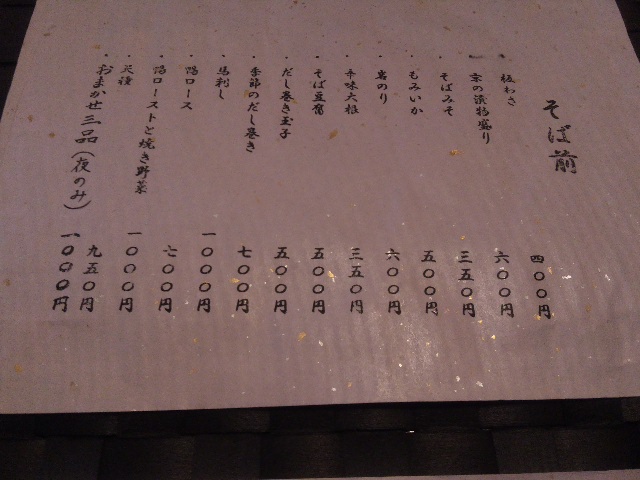 そば前
・板わさ 四〇〇円
・京の漬物盛り 六〇〇円
・そばみそ 三五〇円
・もみいか 五〇〇円
・岩のり 六〇〇円
・辛味大根 三五〇円
・そば豆腐 五〇〇円
・だし巻き玉子 五〇〇円
・季節のだし巻き 七〇〇円
・馬刺し 一〇〇〇円
・鴨ロース 七〇〇円
・鴨ローストと焼き野菜 一〇〇〇円
・天種 九五〇円
・おまかせ三品(夜のみ) 一〇〇〇円